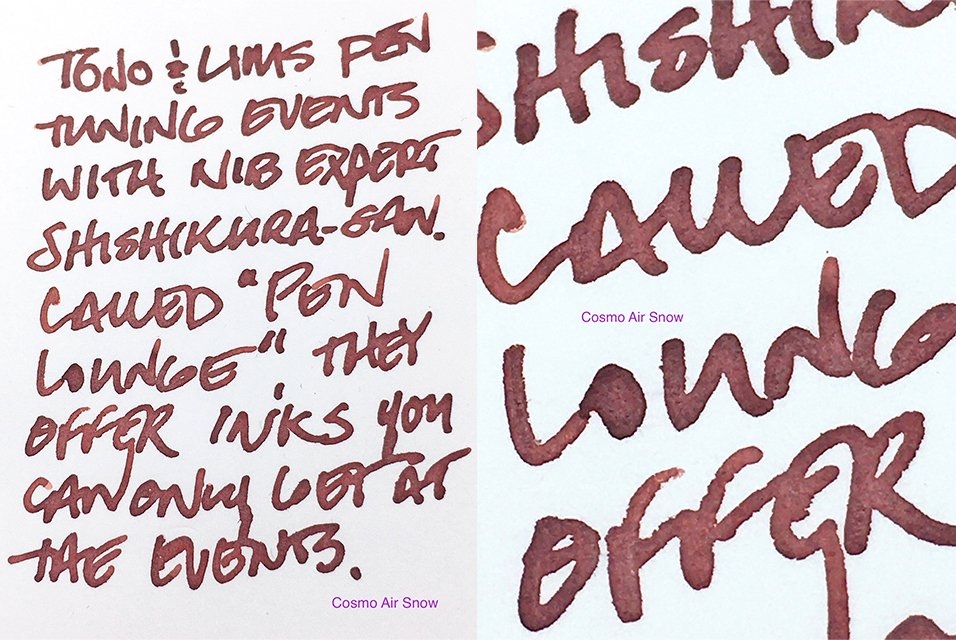 TONO & LIMS PEN
TUNING EVENTS
WITH NIB EXPERT
SHISHIKURA-SAN.
CALLED "PEN
LOUNGE" THEY
OFFER INKS YOU
CAN ONLY GET AT
THE EVENTS.
Cosmo Air Snow
SHISHIK
CALLED
Cosmo Air Snow
LOUNG
OFFER